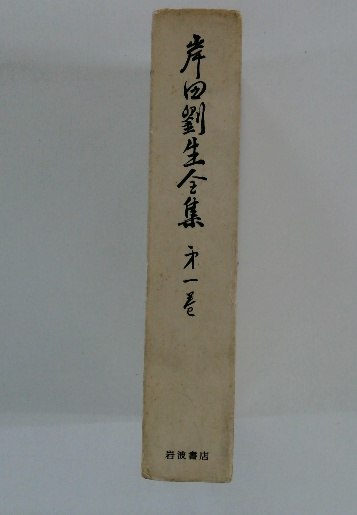 岸田劉生全集 第一巻
岩波書店